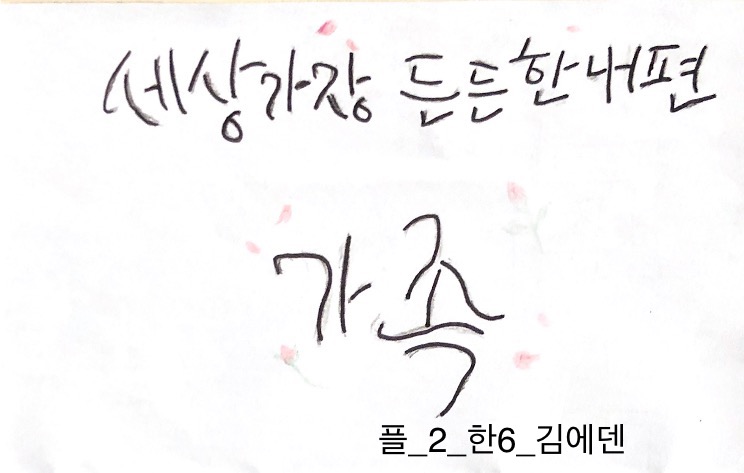 세상가장 든든한내편
가족
플_2_한6_김에덴